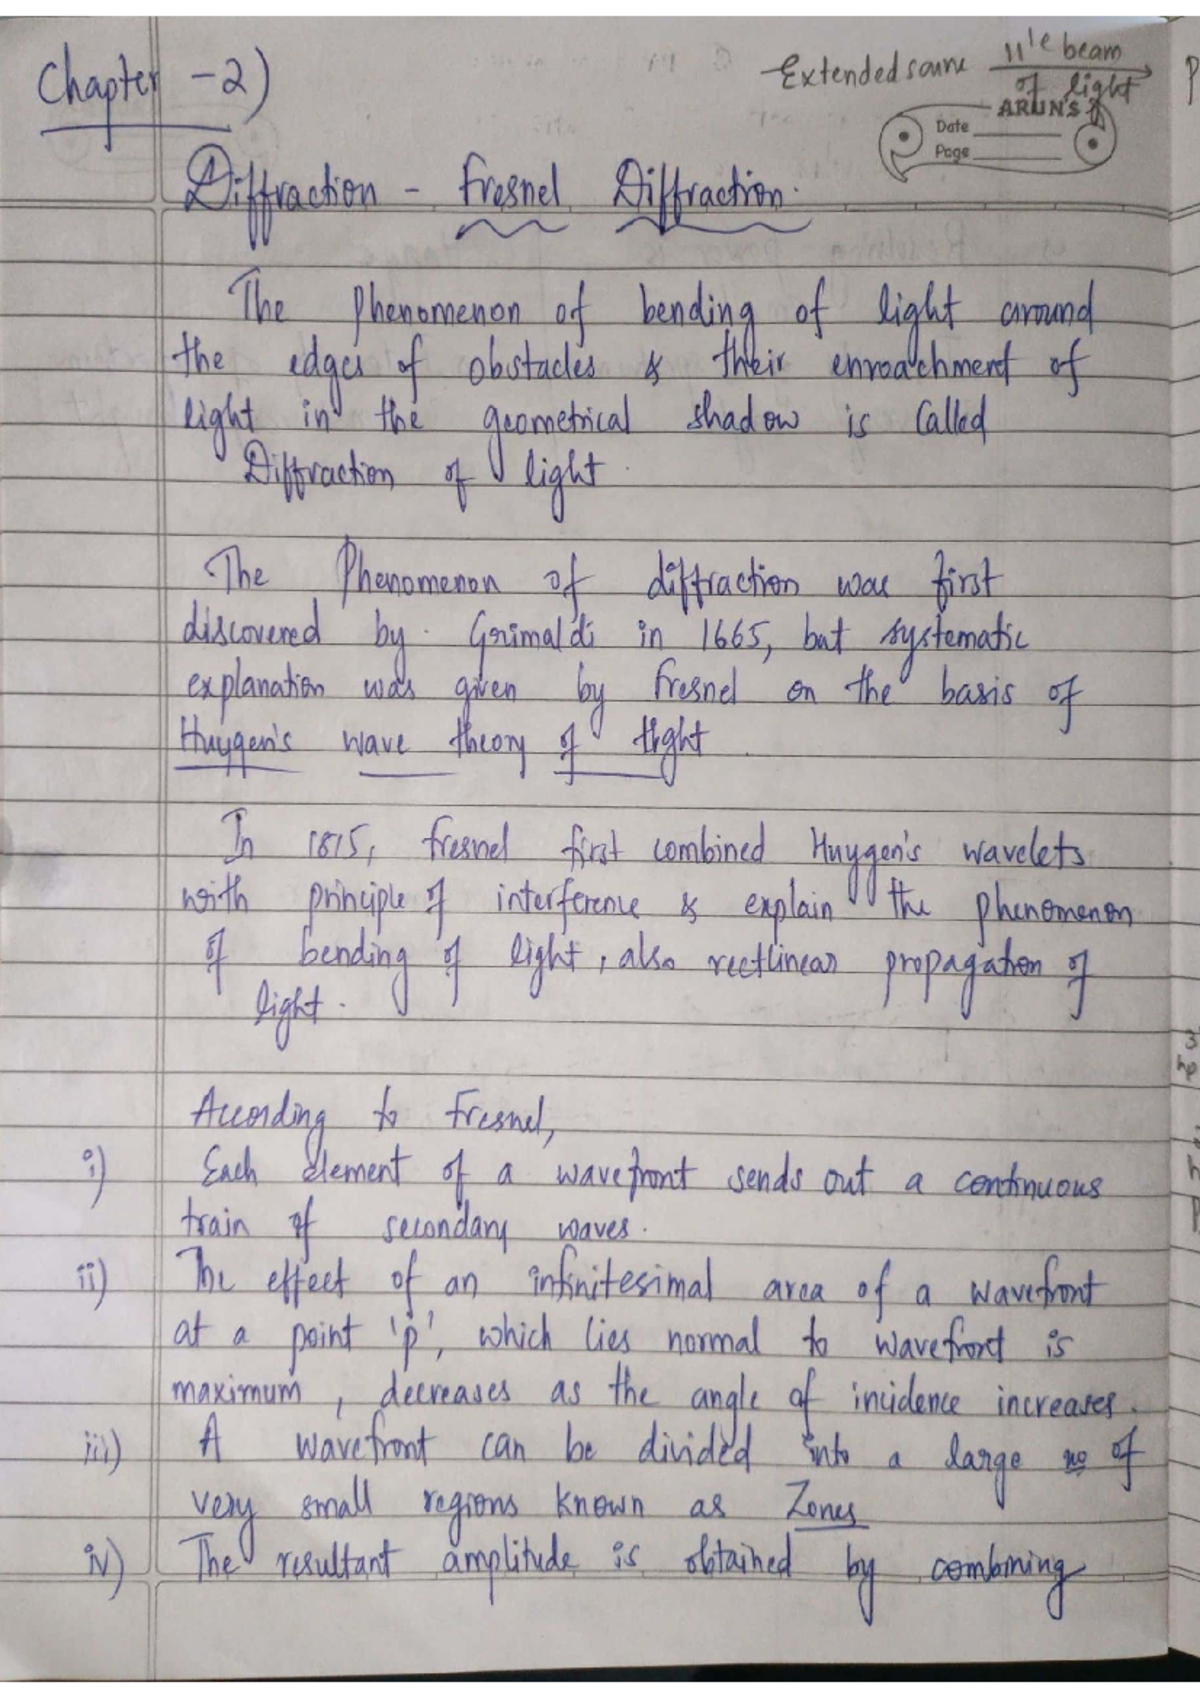 Chapter -2)
Extended source 11'le beam
of light
ARUN'S
Date
Page
Diffraction - Fresnel Diffraction.
The Phenomenon of bending of light around
the edges of obstacles & their enroachment of
light in the geometrical shadow is Called
Diffraction of light.
The Phenomenon of diffraction was first
discovered by Grimaldi in 1665, but systematic
explanation was given by Fresnel on the basis of
Huygen's wave theory of light.
In 1815, Fresnel first combined Huygen's wavelets
with principle of interference & explain the phenomenon
of bending of light, also rectlinear propagation of
light.
According to Fresnel,
i) Each element of a wavefront sends out a continuous
train of secondary waves.
ii) The effect of an infinitesimal area of a wavefront
at a point 'p', which lies normal to wavefront is
maximum, decreases as the angle of incidence increases.
iii) A wavefront can be divided into a large no of
very small regions known as Zones
iv) The resultant amplitude is obtained by combining